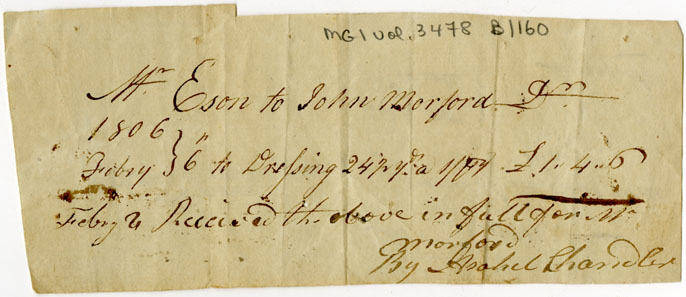 MG1 vol. 3478 B/160
Mr Eson to John Morford Dr
1806
Febry 6 to Dressing 24½ yds a 1/ £1,,4,,6
Febry Received the above in full for Mr
Morford
By Asahel Chandler